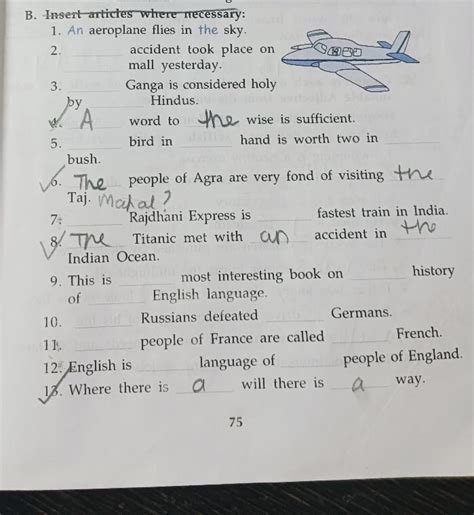 B. Insert articles where necessary:
1. An aeroplane flies in the sky.
2. ______ accident took place on
mall yesterday.
3. ______ Ganga is considered holy
by ______ Hindus.
4. A word to the wise is sufficient.
5. ______ bird in ______ hand is worth two in ______
bush.
6. The people of Agra are very fond of visiting the
Taj. Mahal?
7. ______ Rajdhani Express is ______ fastest train in India.
8. The Titanic met with an accident in the
Indian Ocean.
9. This is ______ most interesting book on ______ history
of ______ English language.
10. ______ Russians defeated ______ Germans.
11. ______ people of France are called ______ French.
12. English is ______ language of ______ people of England.
13. Where there is a will there is a way.
75